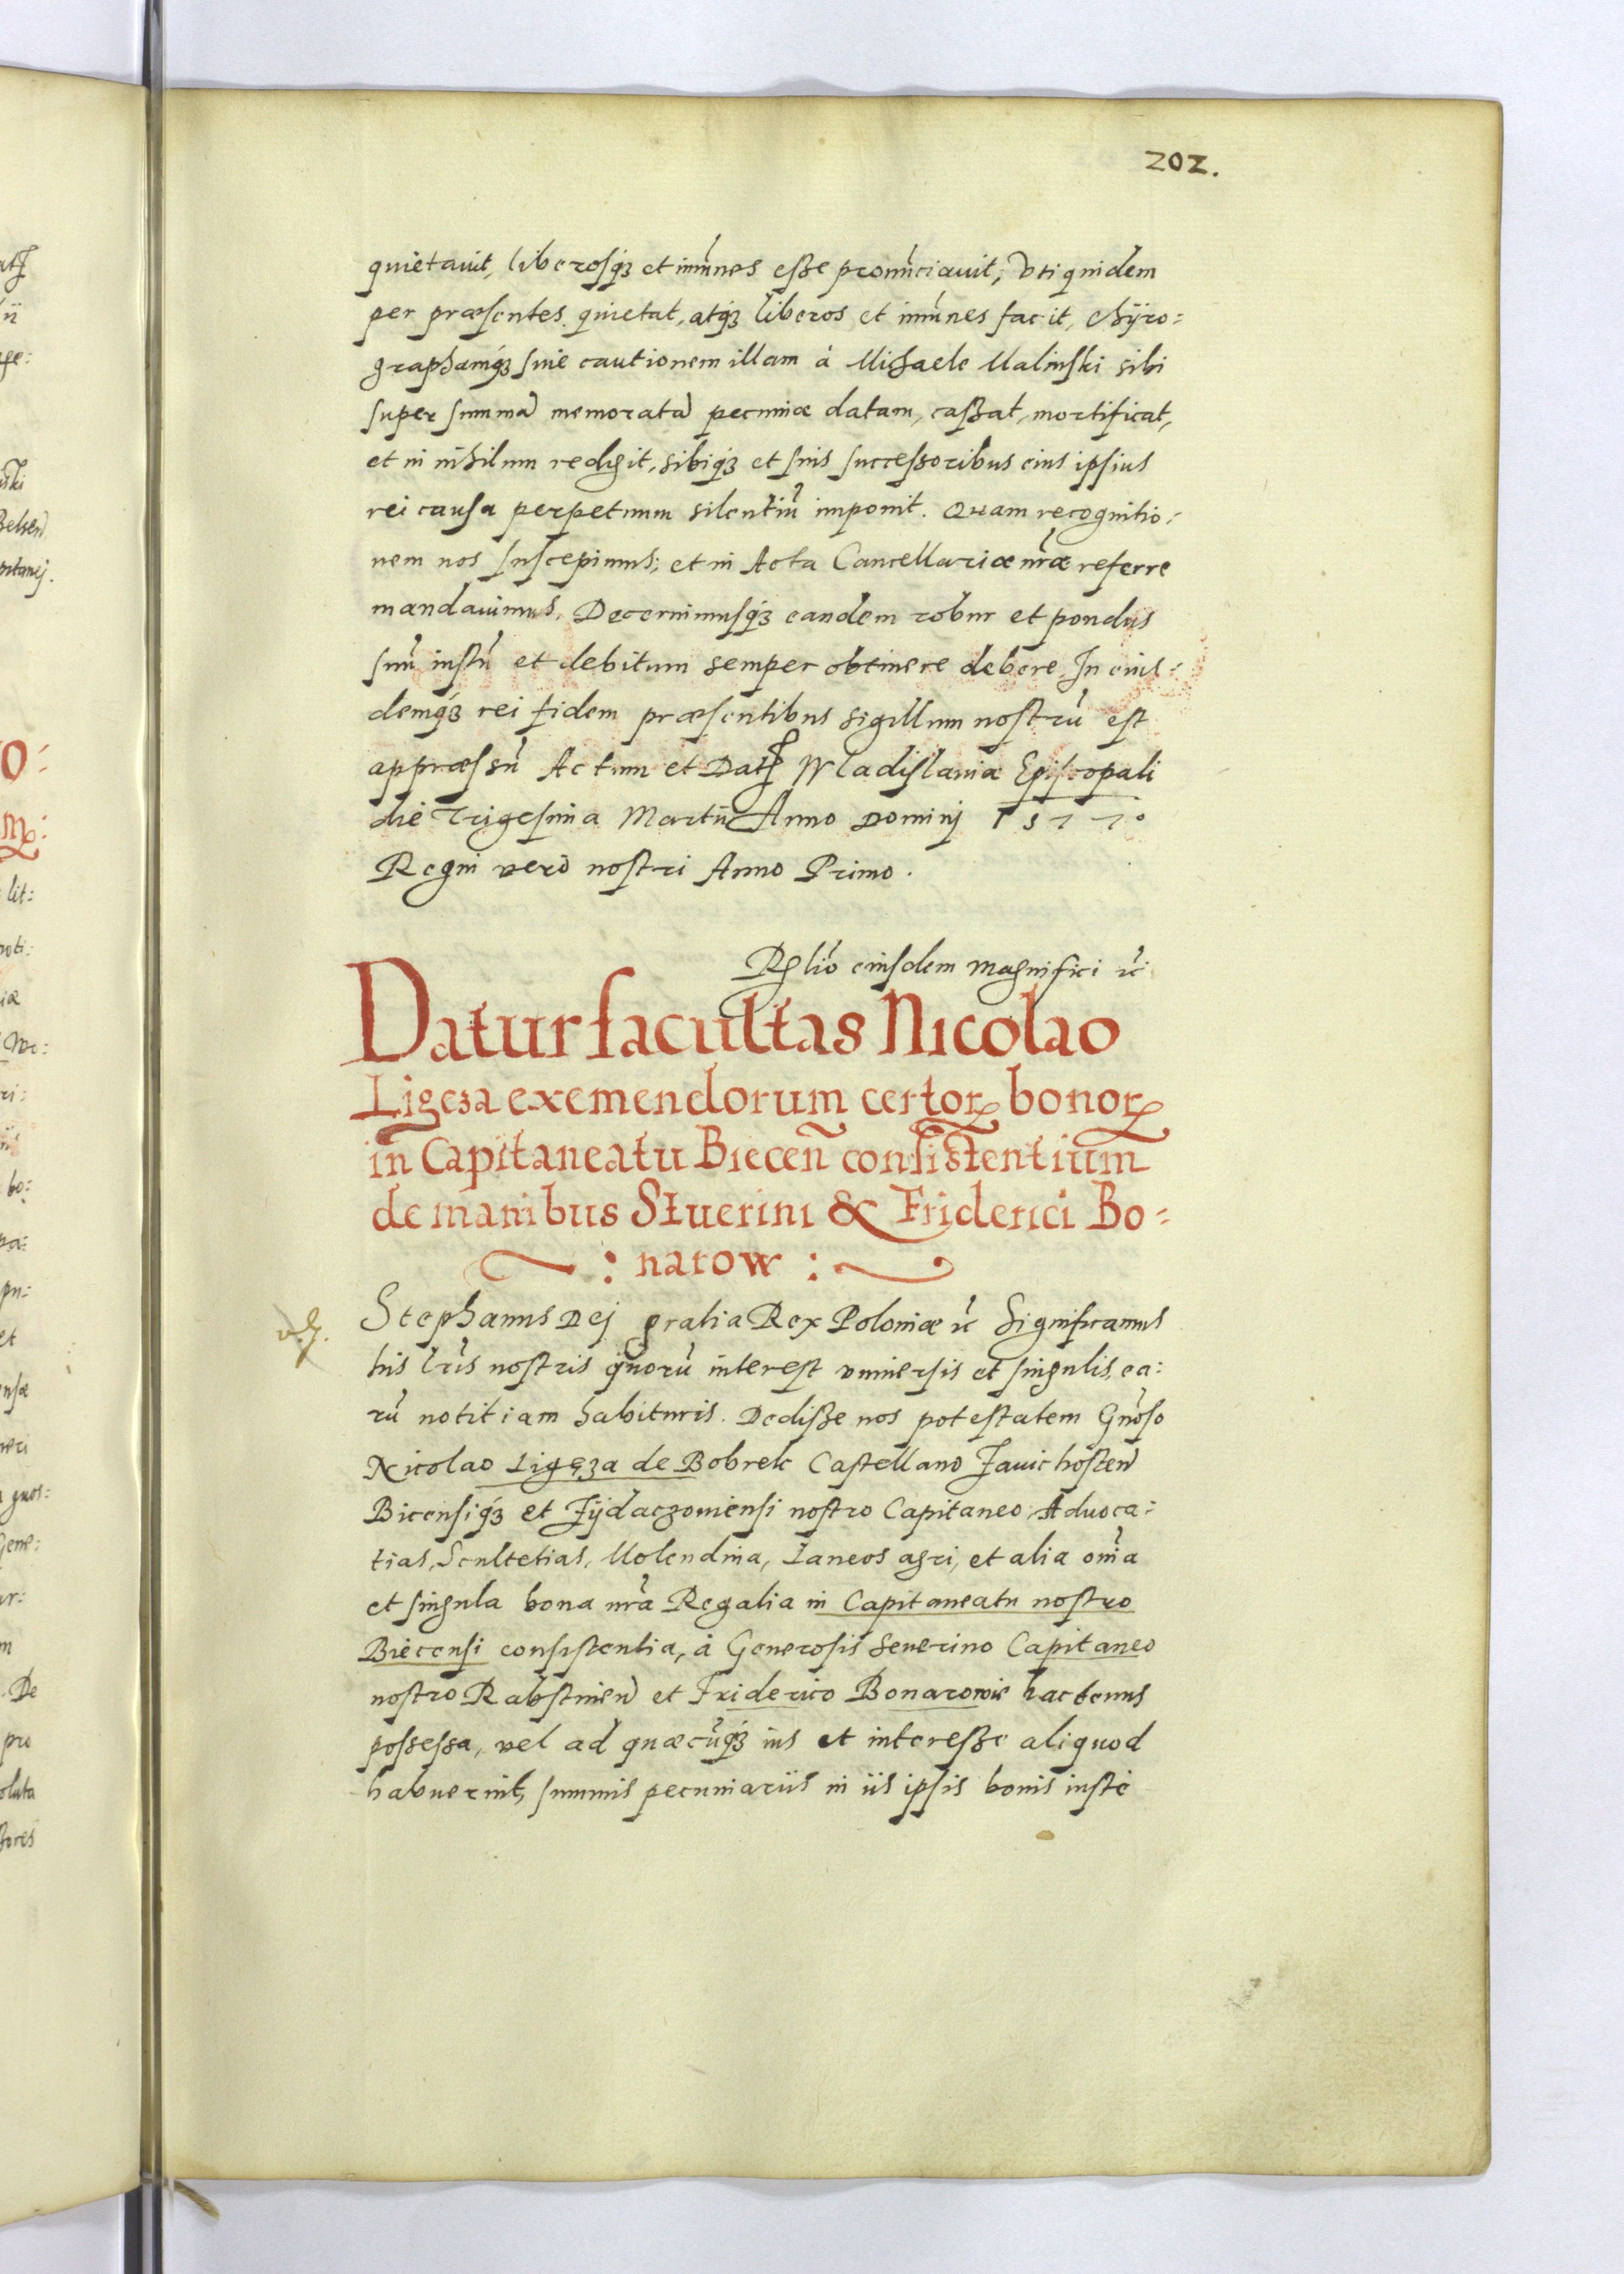 202.
quietavit, liberosq́3 et im̃unes eſse pronũciavit, Vti quidem
per præsentes quietat, atq́3 liberos et im̃unes facit, chÿro:
graphumq́3 sive cautionem illam à Michaele Malinſki sibi
super summã memoratã pecuniæ datam, caſsat, mortificat,
et in nihilum redigit, sibiq́3 et suis succeſsoribus eius ipsius
rei causa perpetuum silentiũ imponit. Quam recognitio:
nem nos suscepimus; et in Acta Cancellariæ nr̃æ referre
mandavimus, Decernimusq́3 eandem robur et pondus
suũ iustũ et debitum semper obtinere debere. In eius:
demq́3 rei fidem præsentibus sigillum nostrũ est
appræssũ Actum et Dat Wladislaviæ Episcopali
die Trigesima Martii Anno Dominj 1577°
Regni verò nostri Anno Primo.
Rℓtio eiusdem Magnifici ꝛc̃
Datur facultas Nicolao
Ligeza exemendorum certoꝝ bonoꝝ
in Capitaneatu Biecen̄ consistentium
de manibus Stuerini & Friderici Bo=
: narow :
Stephanus Dej gratia Rex Poloniæ ꝛc̃ Significamus
his lr̃is nostris quorũ interest vniversis et singulis, ea:
rũ notitiam habituris. Dediſse nos potestatem Gñoso
Nicolao Ligęza de Bobrek Castellano Zavichosteñ
Biecensiq́3 et Zÿdaczoviensi nostro Capitaneo Advoca:
tias, Scultetias, Molendina, Laneos agri, et alia om̃ia
et singula bona nr̃a Regalia in Capitaneatu nostro
Biecensi consistentia, à Generosis Severino Capitaneo
nostro Rabstineñ et Friderico Bonarowie hactenus
poſseſsa, vel ad quæcũq́3 ius et intereſse aliquod
habuerint, summis pecuniariis in iis ipsis bonis iuste